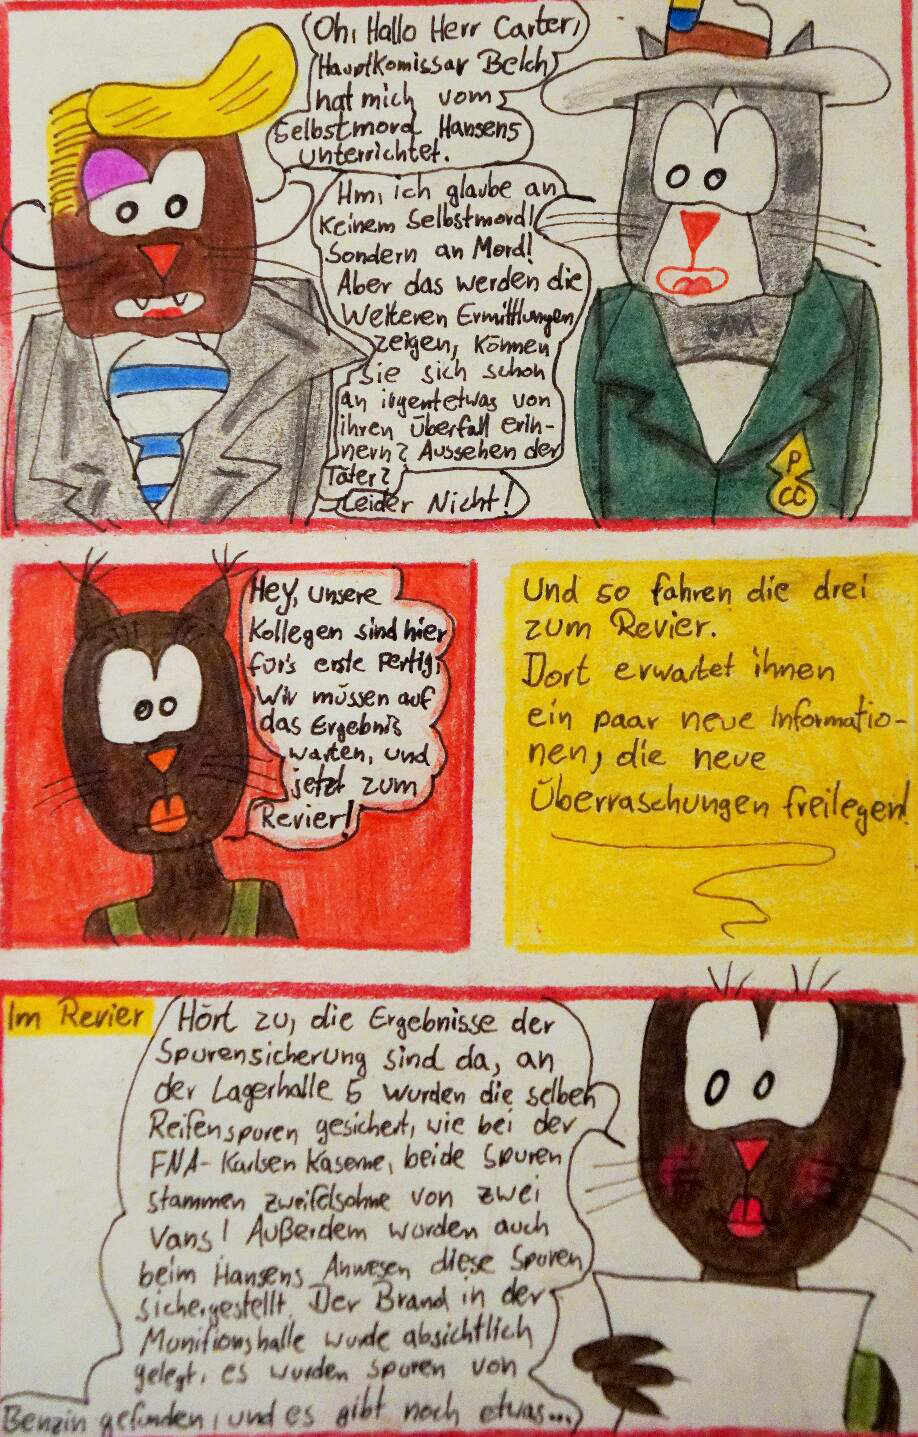 Oh, Hallo Herr Carter,
Hauptkomissar Belch
hat mich vom
Selbstmord Hansens
unterrichtet.
Hm, ich glaube an
keinem Selbstmord!
Sondern an Mord!
Aber das werden die
Weiteren Ermittlungen
zeigen, können
sie sich schon
an irgentetwas von
ihren Überfall erin-
nern? Aussehen der
Täter?
Leider Nicht!
P
CC
Hey, unsere
Kollegen sind hier
für's erste Fertig,
Wir müssen auf
das Ergebnis
warten, und
jetzt zum
Revier!
Und so fahren die drei
zum Revier.
Dort erwartet ihnen
ein paar neue Informatio-
nen, die neue
Überraschungen freilegen!
Im Revier
Hört zu, die Ergebnisse der
Spurensicherung sind da, an
der Lagerhalle 5 wurden die selben
Reifenspuren gesichert, wie bei der
FNA-Karlsen Kaserne, beide Spuren
stammen zweifelsohne von zwei
Vans! Außerdem wurden auch
beim Hansens Anwesen diese Spuren
sichergestellt. Der Brand in der
Munitionshalle wurde absichtlich
gelegt, es wurden Spuren von
Benzin gefunden, und es gibt noch etwas...